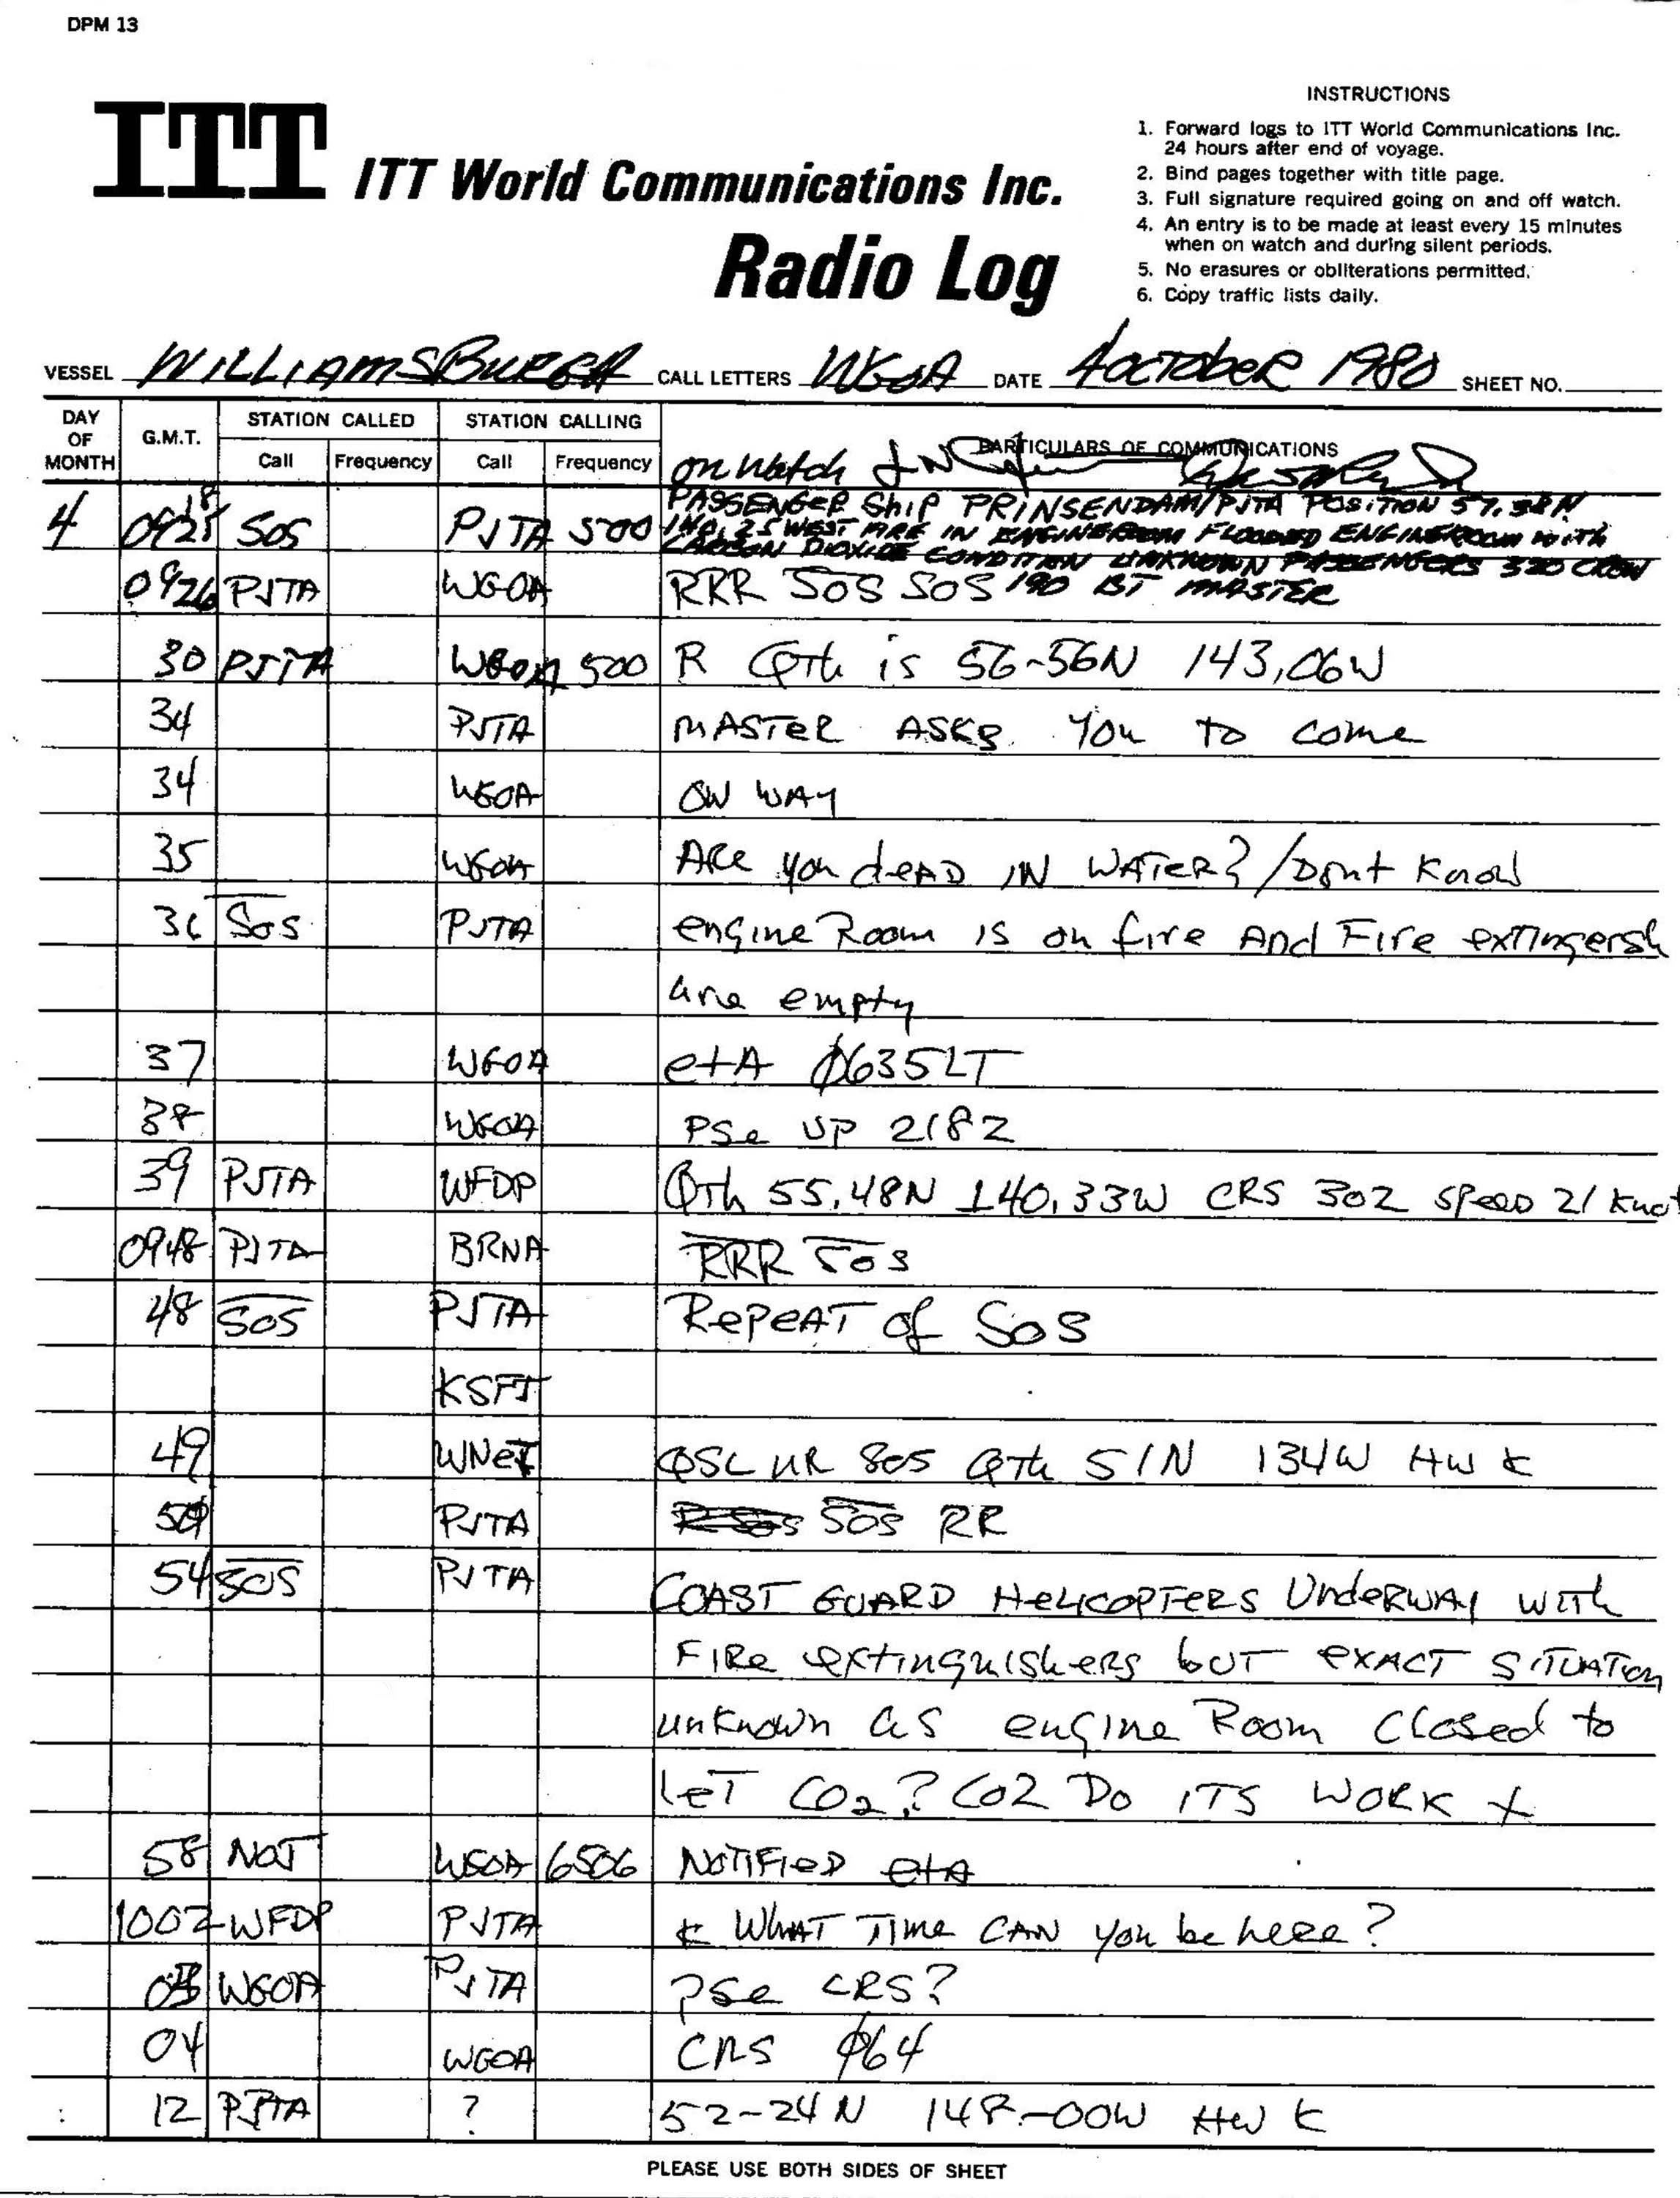 DPM 13
INSTRUCTIONS
1. Forward logs to ITT World Communications Inc.
24 hours after end of voyage.
2. Bind pages together with title page.
3. Full signature required going on and off watch.
4. An entry is to be made at least every 15 minutes
when on watch and during silent periods.
5. No erasures or obliterations permitted.
6. Copy traffic lists daily.
ITT ITT World Communications Inc.
Radio Log
VESSEL WILLIAMSBURGH CALL LETTERS WGOA DATE 4 OCTOBER 1980 SHEET NO.
DAY OF MONTH G.M.T. STATION CALLED STATION CALLING PARTICULARS OF COMMUNICATIONS
Call Frequency Call Frequency on watch
PASSENGER SHIP PRINSENDAM/PJTA POSITION 57.38N
4 SOS PJTA 500 140.25 WEST FIRE IN ENGINEROOM FLOODED ENGINEROOM WITH
CARBON DIOXIDE CONDITION UNKNOWN PASSENGERS 320 CREW
0926 PJTA WGOA RRR SOS SOS 190 BT MASTER
30 PJTA WGOA 500 R QTh is 56-56N 143,06W
34 PJTA MASTER ASKS YOU TO come
34 WGOA ON WAY
35 WGOA ARe you deAD IN WATER? / Dont Know
36 SOS PJTA engine Room is on fire And Fire extingersh
are empty
37 WGOA etA Ø635LT
38 WGOA PSe UP 2182
39 PJTA WFDP QTh 55.48N 140.33W CRS 302 speeD 21 Knot
0948 PJTA BRNA RRR SOS
48 SOS PJTA RePeAT of SOS
KSFJ
49 WNeT QSL UR SOS QTh 51N 134W HW K
50 PJTA SOS RR
54 SOS PJTA COAST GUARD HeLICOPTeRS UndeRWAY WITh
FIRe extinguisheRs bUT eXACT SITUATion
unKnown as engine Room Closed to
LeT CO2? CO2 DO ITS WORK +
58 NOJ WGOA 6506 NOTIFIeD etA
1002 WFDP PJTA K WhAT TIMe CAN you be heRe?
03 WGOA PJTA PSe CRS?
04 WGOA CRS Ø64
12 PJTA ? 52-24N 148-00W HW K
PLEASE USE BOTH SIDES OF SHEET